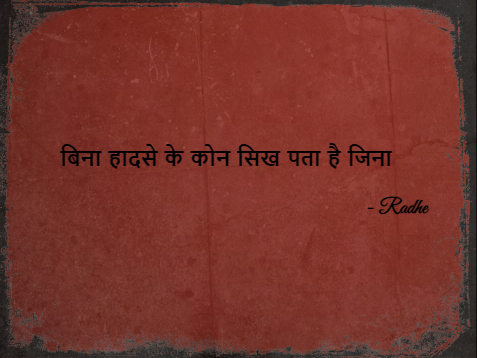 बिना हादसे के कोन सिख पता है जिना
- Radhe